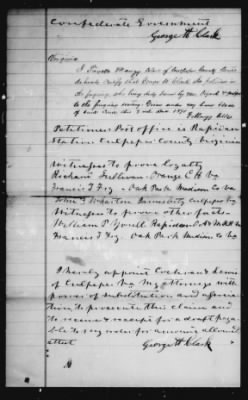 Confederate Government
George H. Clark
Virginia
I Fayette Mauzy Clerk of Culpeper County Court
do hereby certify that George H. Clark the petitioner in
the foregoing, who being duly sworn by me signed &
to the foregoing Given under my hand
of said Court this 3rd 187
F Mauzy Clk
Petitioners Post Office is Rapidan
Station Culpeper County Virginia
Witnesses to prove loyalty
Richard Sullivan Orange C.H. Va
Francis T Fry - Oak Park Madison Co Va
John Wharton Culpeper Va
Witnesses to prove other facts
William P Yowell Rapidan Va
Francis T Fry. Oak Park Madison Co Va
I hereby appoint Cochran & Lewis
of Culpeper Va My attorneys with
power of substitution and
to prosecute this claim and
to receive & receipt for a draft paya
ble to my order for amount allowed
attest
George H Clark